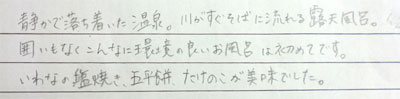 静かで落ち着いた温泉。川がすぐそばに流れる露天風呂。
囲いもなくこんなに環境の良いお風呂は初めてです。
いわなの塩焼き、五平餅、たけのこが美味でした。